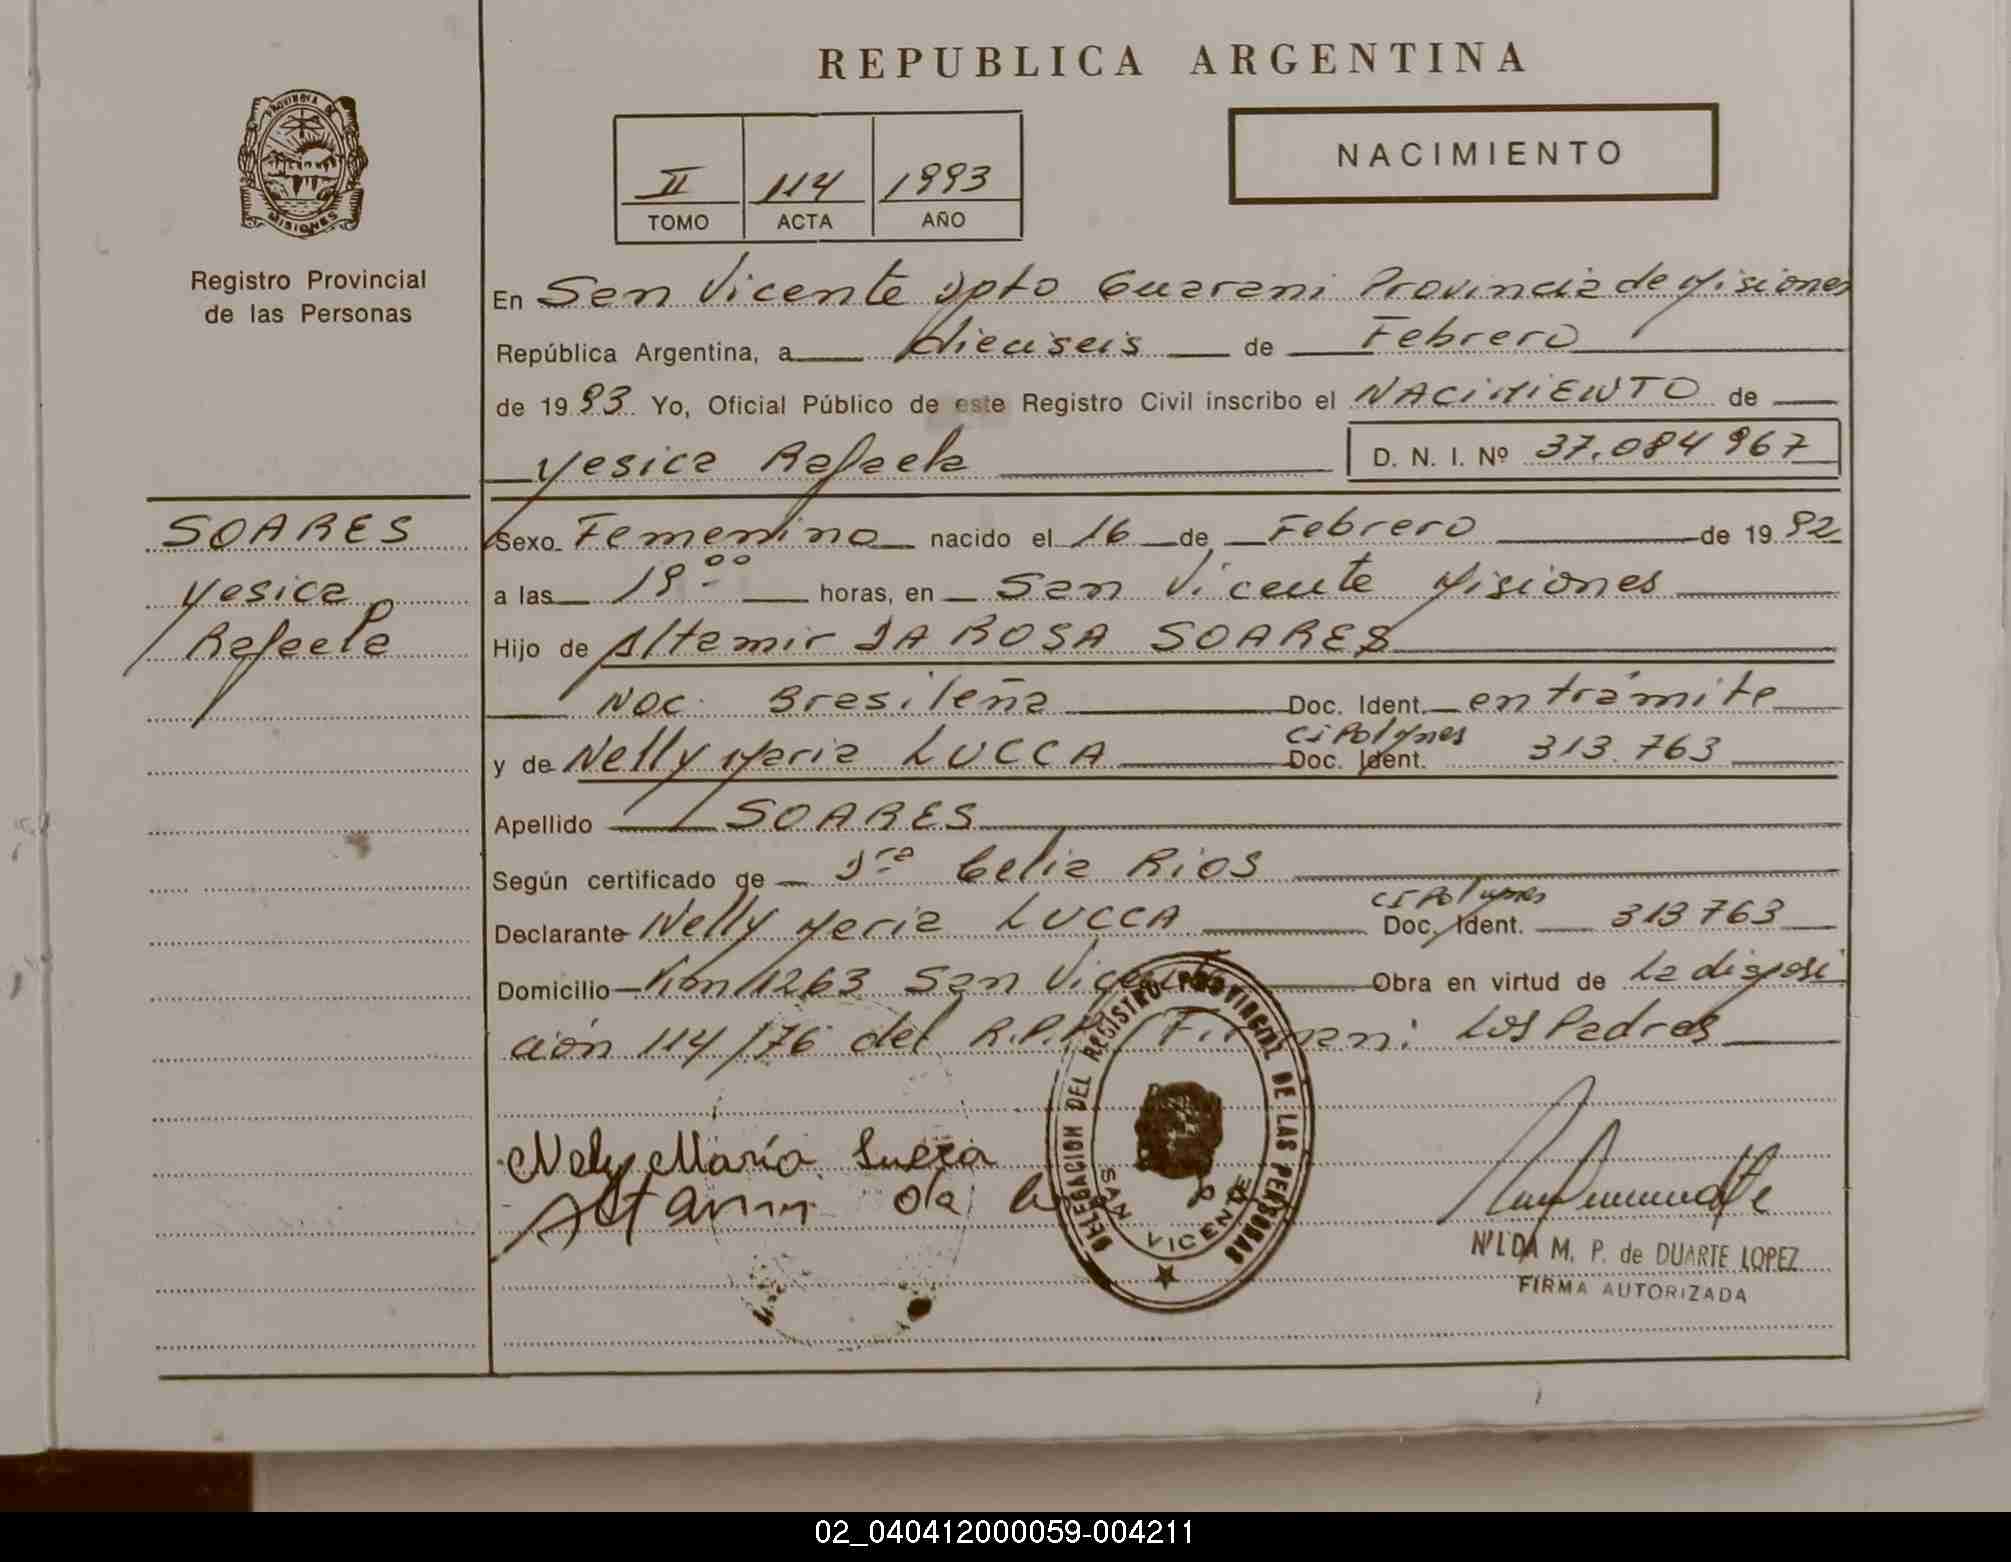 REPUBLICA ARGENTINA
PROVINCIA DE
MISIONES
Registro Provincial
de las Personas
II 114 1993
TOMO ACTA AÑO
NACIMIENTO
En San Vicente Dpto Guarani Provincia de Misiones
República Argentina, a dieciseis de Febrero
de 1993 Yo, Oficial Público de este Registro Civil inscribo el NACIMIENTO de
Yesica Rafaela D. N. I. Nº 37.084 967
SOARES
Yesica
Rafaela
Sexo Femenino nacido el 16 de Febrero de 1992
a las 19:00 horas, en San Vicente Misiones
Hijo de Altamir DA ROSA SOARES
Nac. Brasileña Doc. Ident. en trámite
y de Nelly Maria LUCCA CiPolMnes Doc. Ident. 313.763
Apellido SOARES
Según certificado de Dra Celia Rios
Declarante Nelly Maria LUCCA CIPolMnes Doc. Ident. 313763
Domicilio Km 1263 San Vicente Obra en virtud de La disposi
ción 114/76 del R.P.P. Firman: Los Padres
Nely María Lucca
Altamir da
DELEGACION DEL REGISTRO PROVINCIAL DE LAS PERSONAS
SAN VICENTE
NILDA M. P. de DUARTE LOPEZ
FIRMA AUTORIZADA
02_040412000059-004211